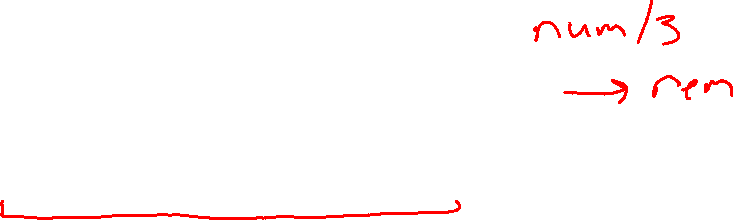 num/3
→ rem